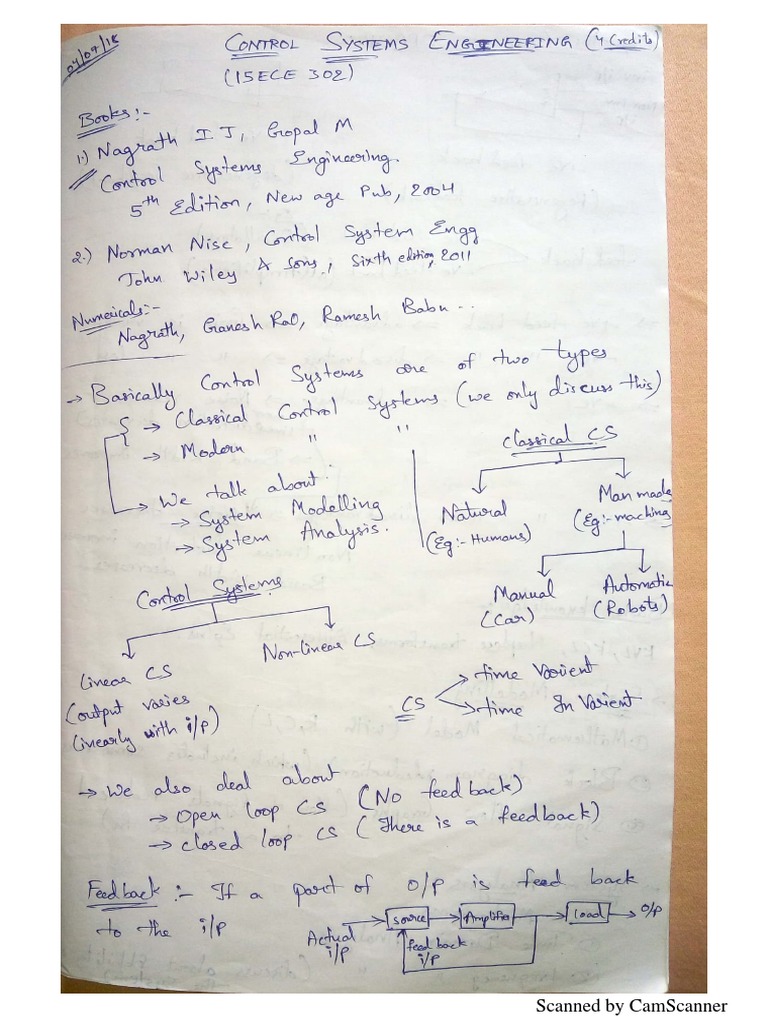 04/07/18
CONTROL SYSTEMS ENGINEERING (4 Credits)
(15ECE 302)
Books:-
1.) Nagrath I J, Gopal M
Control Systems Engineering.
5th Edition, New age Pub, 2004
2.) Norman Nise, Control System Engg
John Wiley & Sons, Sixth edition, 2011
Numericals:-
Nagrath, Ganesh Rao, Ramesh Babu ...
→ Basically Control Systems are of two types
→ Classical Control Systems (we only discuss this)
→ Modern " "
→ We talk about
→ System Modelling
→ System Analysis.
Classical CS
Natural
(Eg:- Humans)
Man made
(Eg:- maching
Manual
(Car)
Automatic
(Robots)
Control Systems
Linear CS
(output varies
linearly with i/p)
Non-linear CS
CS
time Varient
time In Varient
→ We also deal about
→ Open loop CS (No feedback)
→ closed loop CS (There is a feedback)
Feedback :- If a part of O/P is feed back
to the i/p
Actual
i/p
source
Amplifier
Load
O/P
feed back
i/p
Scanned by CamScanner